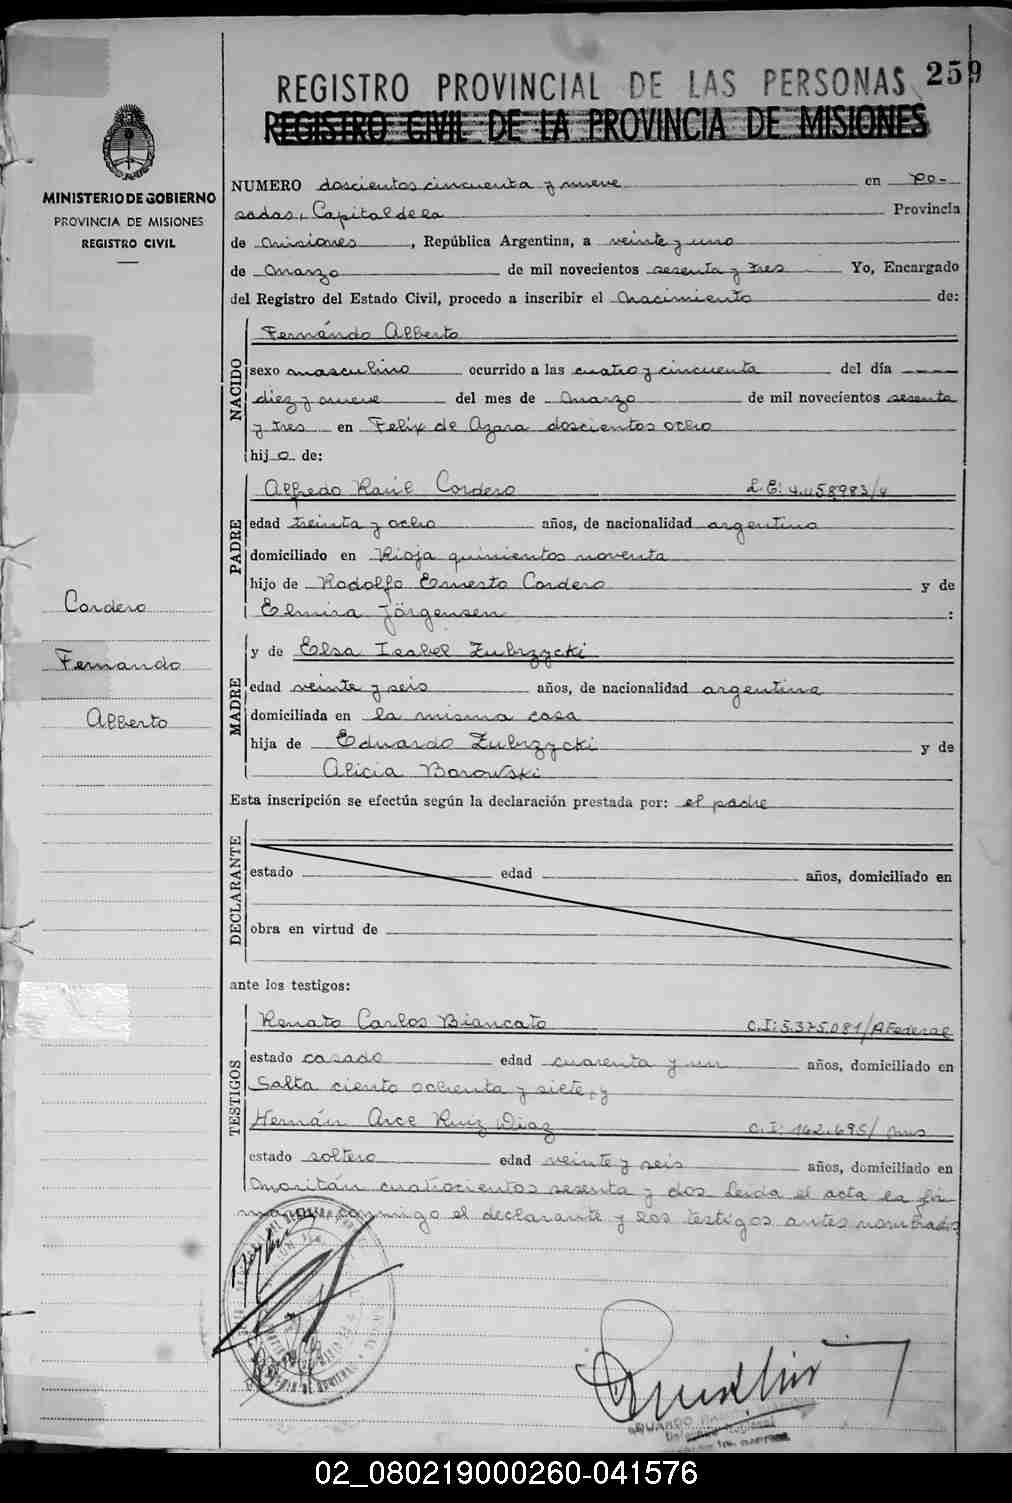 259
REGISTRO PROVINCIAL DE LAS PERSONAS
REGISTRO CIVIL DE LA PROVINCIA DE MISIONES
MINISTERIO DE GOBIERNO
PROVINCIA DE MISIONES
REGISTRO CIVIL
NUMERO doscientos cincuenta y nueve en Po-
sadas, Capital de la Provincia
de Misiones, República Argentina, a veinte y uno
de Marzo de mil novecientos sesenta y tres Yo, Encargado
del Registro del Estado Civil, procedo a inscribir el Nacimiento de:
NACIDO
Fernándo Alberto
sexo masculino ocurrido a las cuatro y cincuenta del día
diez y nueve del mes de Marzo de mil novecientos sesenta
y tres en Felix de Azara doscientos ocho
hijo de:
PADRE
Alfredo Raúl Cordero L.E:
edad treinta y ocho años, de nacionalidad argentino
domiciliado en Rioja quinientos noventa
hijo de Rodolfo Ernesto Cordero y de
Elmira Jörgensen :
Cordero
Fernando
Alberto
MADRE
y de Elsa Isabel Zubrzycki
edad veinte y seis años, de nacionalidad argentina
domiciliada en la misma casa
hija de Eduardo Zubrzycki y de
Alicia Borowski
Esta inscripción se efectúa según la declaración prestada por: el padre
DECLARANTE
estado edad años, domiciliado en
obra en virtud de
ante los testigos:
TESTIGOS
Renato Carlos Biancato C.I: 5.375.081/P.Federal
estado casado edad cuarenta y un años, domiciliado en
Salta ciento ochenta y siete, y
Hernán Arce Ruiz Diaz C.I: 162.695/
estado soltero edad veinte y seis años, domiciliado en
Moritán cuatrocientos sesenta y dos Leida el acta la fir
man conmigo el declarante y los testigos antes nombrados
EDUARDO
02_080219000260-041576